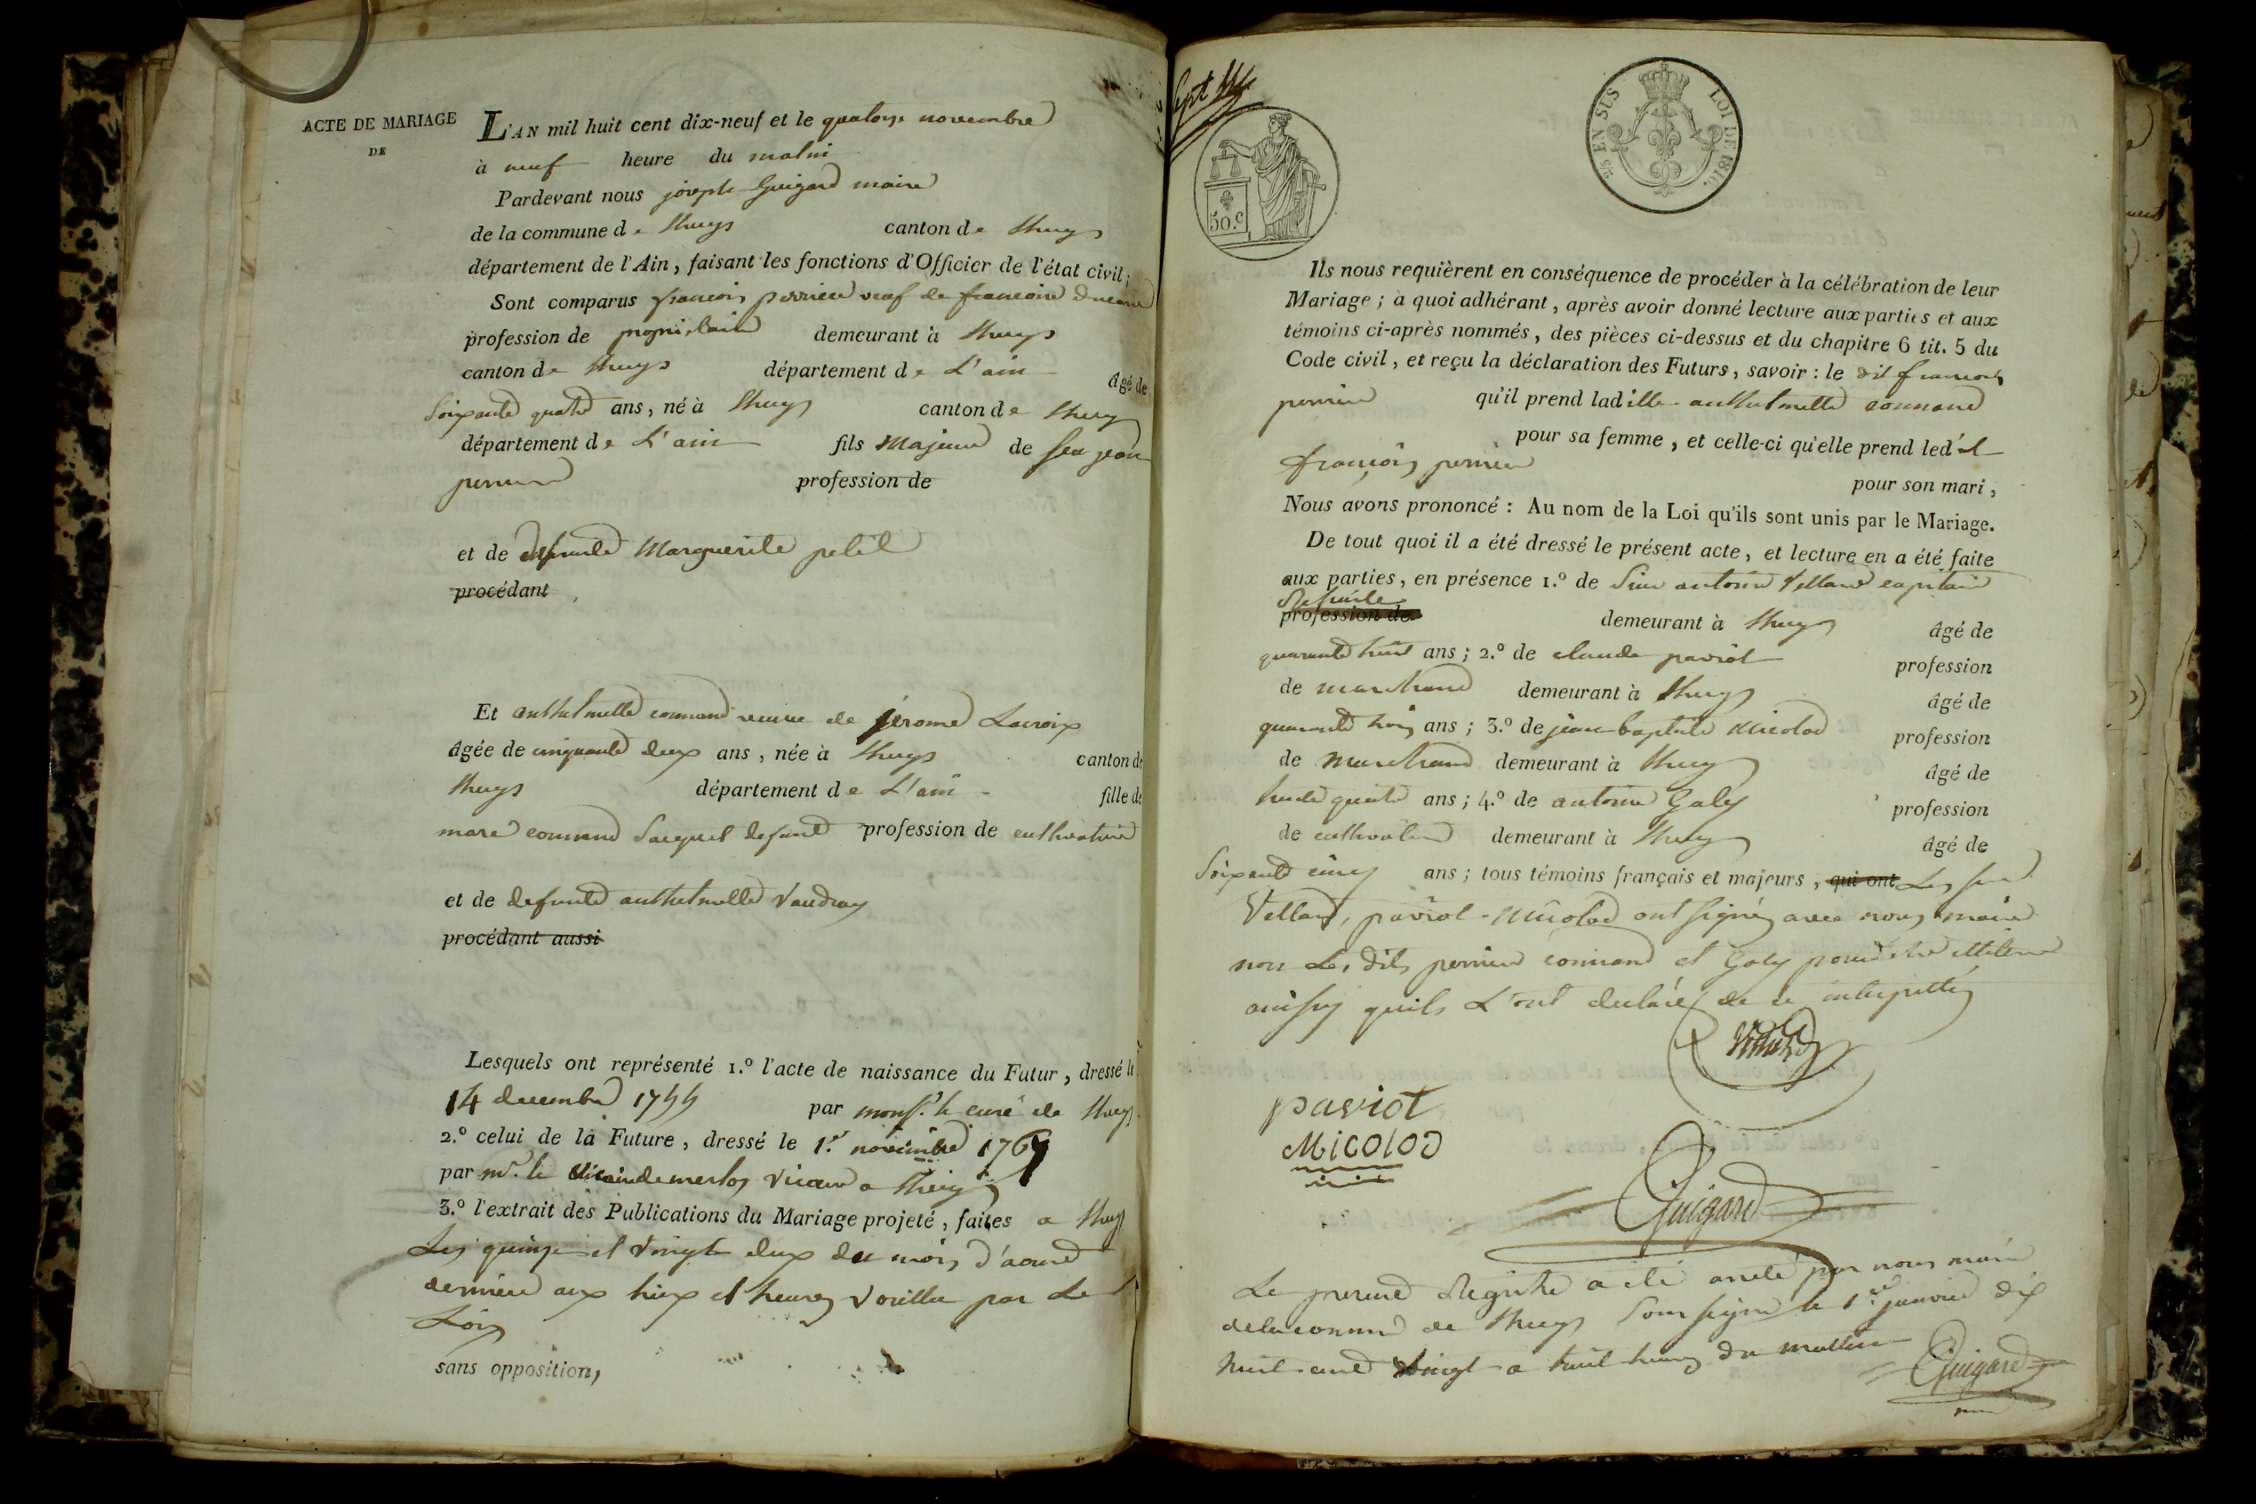 ACTE DE MARIAGE
DE
L'AN mil huit cent dix-neuf et le quatorze novembre
à neuf heure du matin
Pardevant nous joseph Guigard maire
de la commune de thuys canton de thuys
département de l'Ain, faisant les fonctions d'Officier de l'état civil;
Sont comparus françois perrier veuf de francoise
profession de propriétaire demeurant à thuys
canton de thuys département de L'ain âgé de
soixante quatre ans, né à thuys canton de thuys
département de L'ain fils majeur de feu jean
perrier profession de
et de defunte Marguerite petit
procédant
Et anthelmette connand veuve de jérome Lacroix
âgée de cinquante deux ans, née à thuys canton de
thuys département de L'ain fille de
marc connand defunt profession de cultivateur
et de defunte anthelmette Vaudray
procédant aussi
Lesquels ont représenté 1.º l'acte de naissance du Futur, dressé le
14 decembre 1755 par monsr. le curé de thuys
2.º celui de la Future, dressé le 1er novembre 1767
par mr. le vicaire a thuys
3.º l'extrait des Publications du Mariage projeté, faites a thuys
Les quinze et vingt deux du mois d'aout
dernier aux lieux et heures voulue par La
Loix
sans opposition,
sept
50.c
25 EN SUS LOI DE 1816.
Ils nous requièrent en conséquence de procéder à la célébration de leur
Mariage; à quoi adhérant, après avoir donné lecture aux parties et aux
témoins ci-après nommés, des pièces ci-dessus et du chapitre 6 tit. 5 du
Code civil, et reçu la déclaration des Futurs, savoir: le dit francois
perrier qu'il prend laditte anthelmette connand
pour sa femme, et celle-ci qu'elle prend ledit
françois perrier
pour son mari,
Nous avons prononcé: Au nom de la Loi qu'ils sont unis par le Mariage.
De tout quoi il a été dressé le présent acte, et lecture en a été faite
aux parties, en présence 1.º de Sieur antoine Vettard capitaine
Retraité
profession de demeurant à thuys âgé de
quarante huit ans; 2.º de claude paviot profession
de marchand demeurant à thuys âgé de
quarante trois ans; 3.º de jean baptiste Micolod profession
de marchand demeurant à thuys âgé de
trente quatre ans; 4.º de antoine Galy profession
de cultivateur demeurant à thuys âgé de
Soixante cinq ans; tous témoins français et majeurs, qui ont Les sieurs
Vettard, paviot Micolod ont signés avec nous maire
non Les dits perrier connand et Galy pour être illiteré
ainsy quils L'ont declarés de ce interpettés
Vettard
paviot
MICOLOD
Guigard
Le present Registre a été arreté par nous maire
de la commune de thuys soussigné le 1er janvier dix
huit cent vingt a huit heures du mattin
Guigard